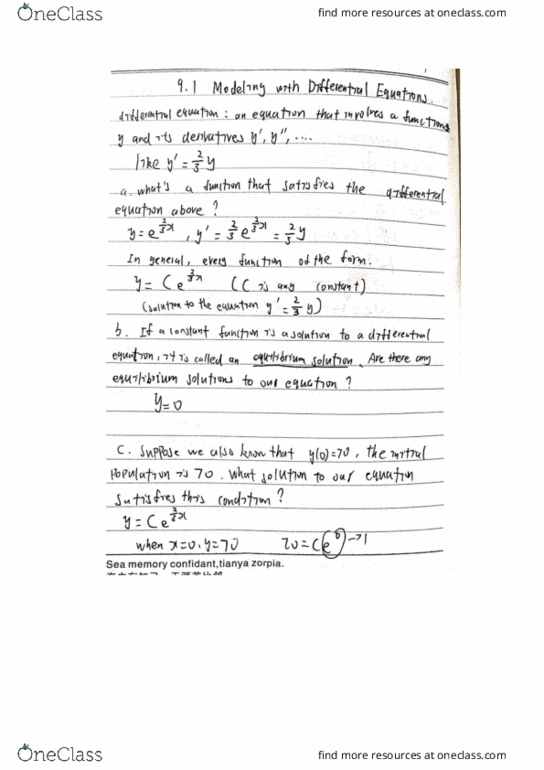 OneClass
find more resources at oneclass.com
9.1 Modeling with Differential Equations.
differential equation: an equation that involves a functions
y and its derivatives y', y'', ....
like y' = 2/3 y
a. what's a function that satisfies the differential
equation above?
y = e^{2/3 x}, y' = 2/3 e^{2/3 x} = 2/3 y
In general, every function of the form.
y = Ce^{2/3 x} (C is any constant)
(solution to the equation y' = 2/3 y)
b. If a constant function is a solution to a differential
equation, it is called an equilibrium solution. Are there any
equilibrium solutions to our equation?
y=0
C. Suppose we also know that y(0)=70, the initial
population is 70. What solution to our equation
satisfies this condition?
y = Ce^{2/3 x}
when x=0, y=70 70=C(e^0)→1
Sea memory confidant,tianya zorpia.
OneClass
find more resources at oneclass.com